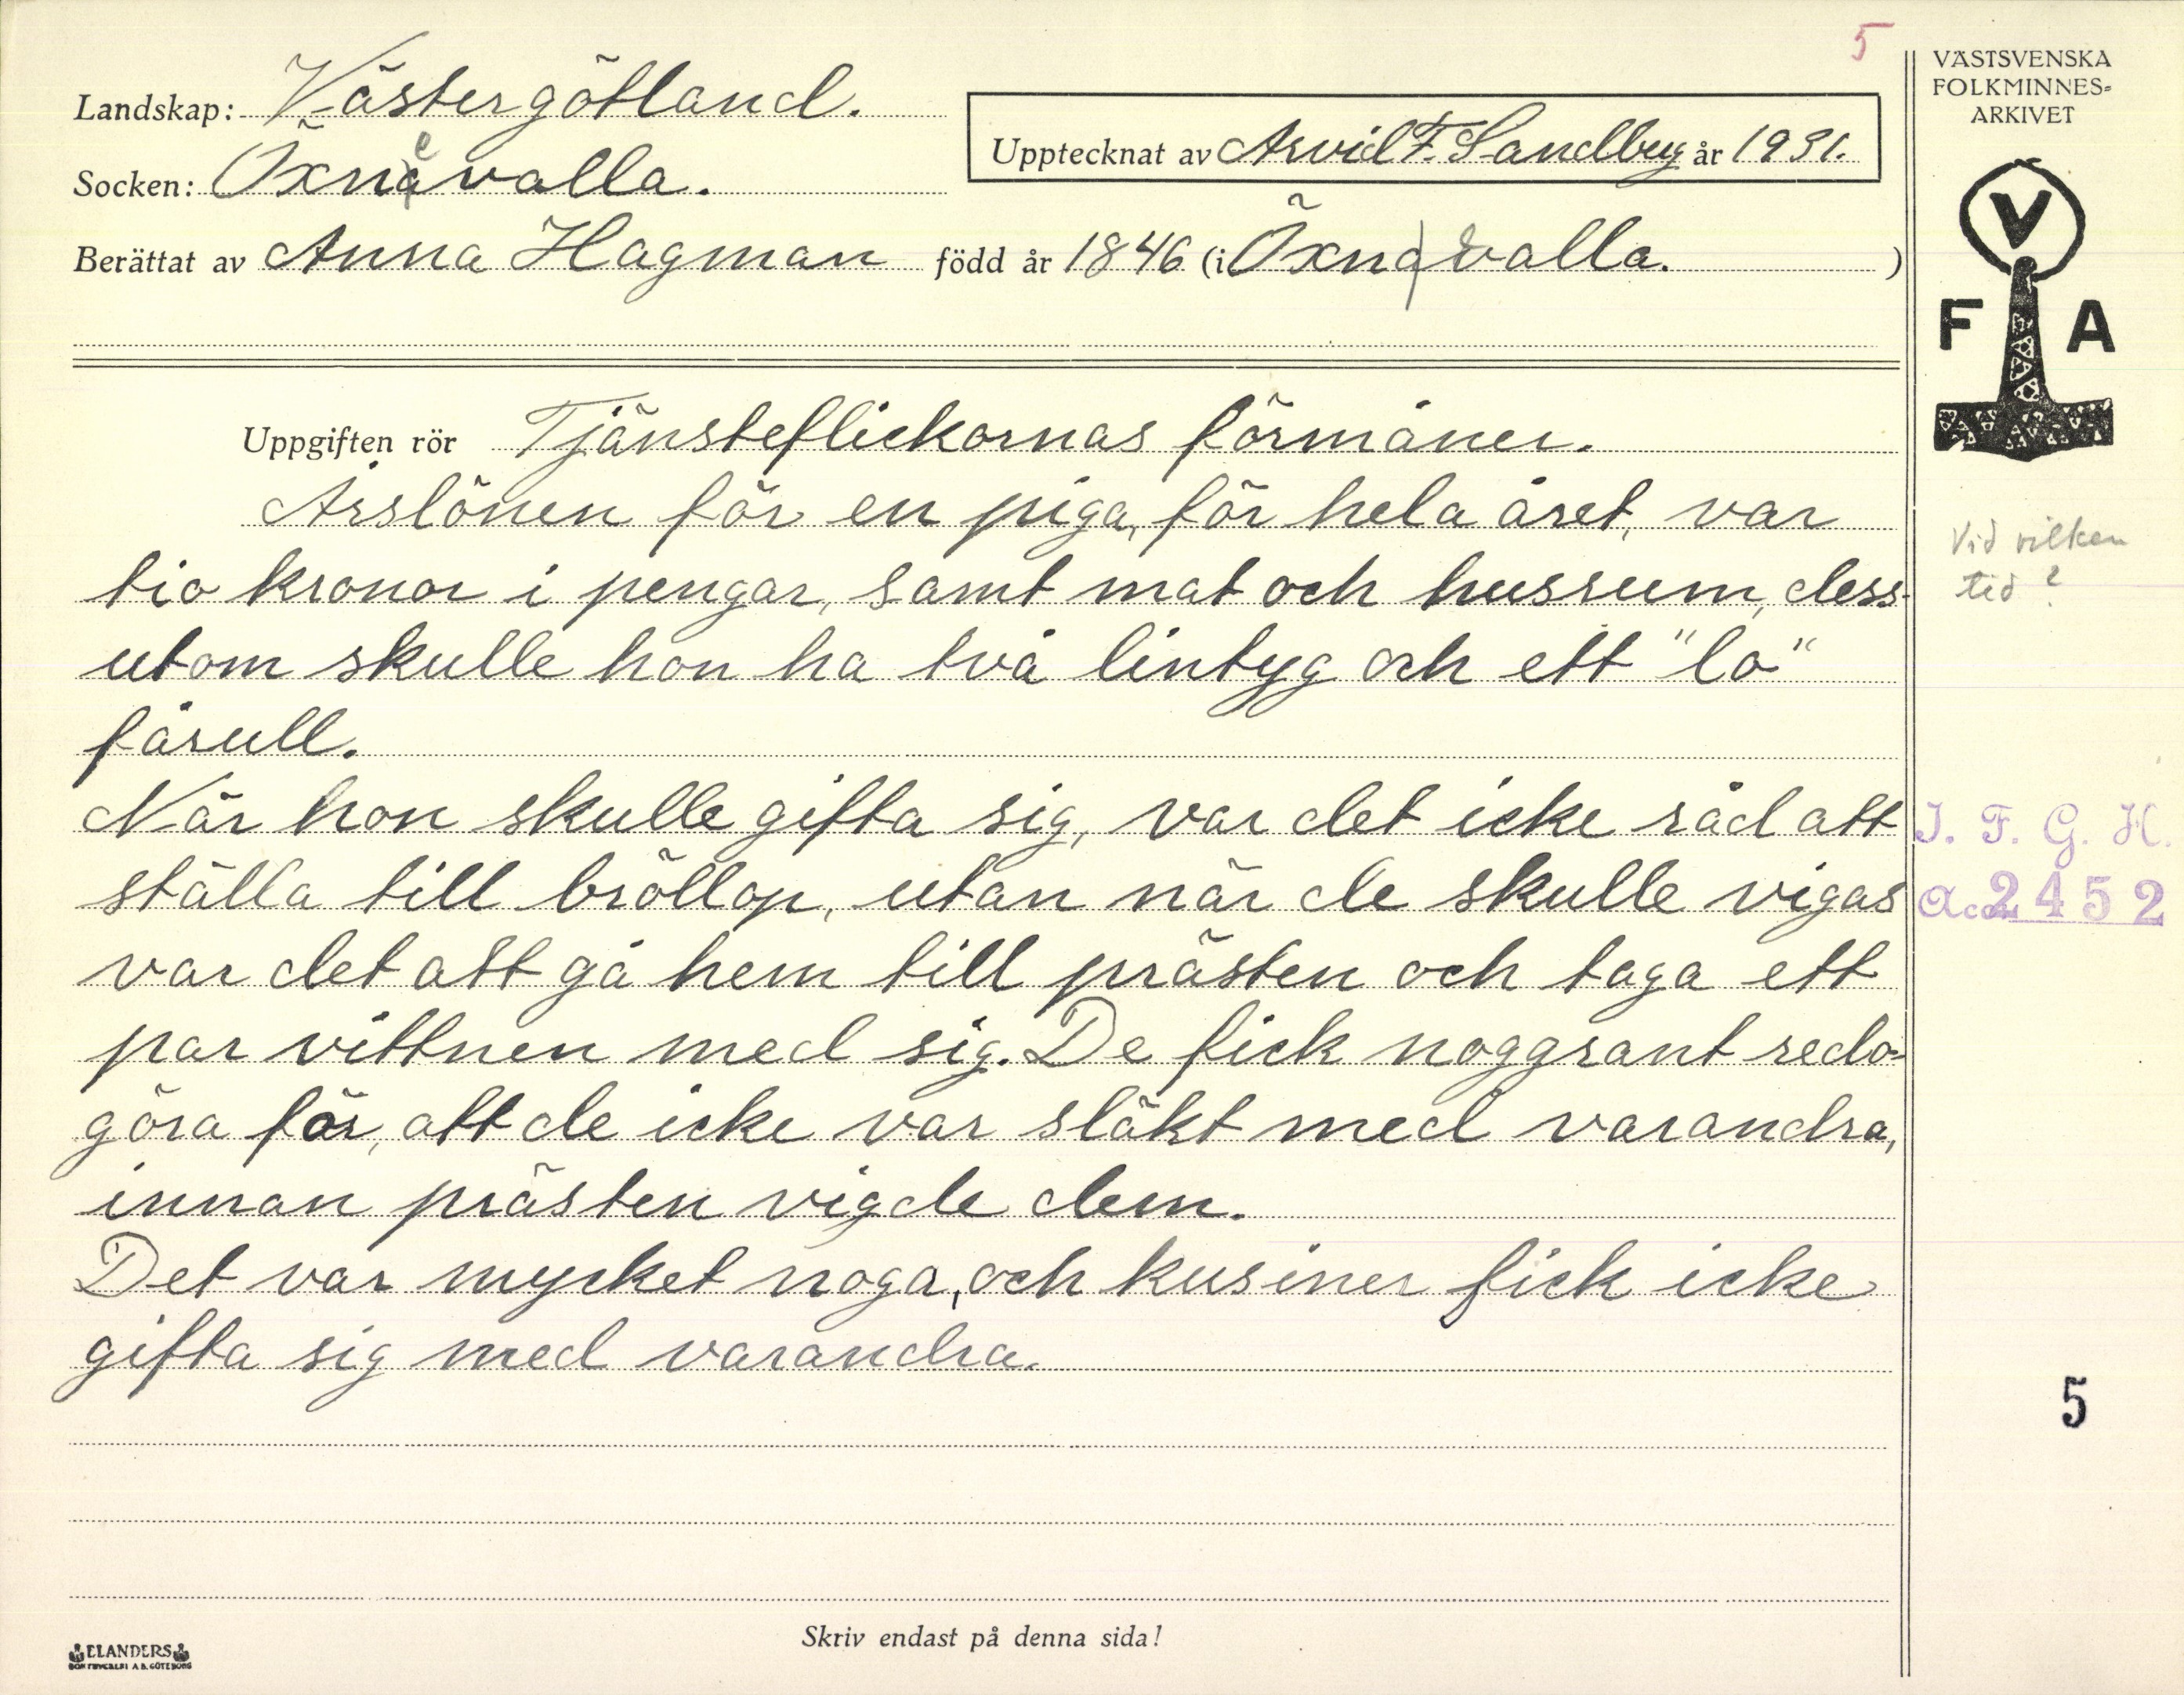 5
Landskap: Västergötland.
Socken: Öxnevalla.
Upptecknat av Arvid F. Sandberg år 1931.
Berättat av Anna Hagman född år 1846 (i Öxnevalla. )
VÄSTSVENSKA
FOLKMINNES-
ARKIVET
V
F A
Uppgiften rör Tjänsteflickornas förmåner.
Årslönen för en piga, för hela året, var
tio kronor i pengar, samt mat och husrum, dess-
utom skulle hon ha två lintyg och ett "lo"
fårull.
När hon skulle gifta sig, var det icke råd att
ställa till bröllop, utan när de skulle vigas
var det att gå hem till prästen och taga ett
par vittnen med sig. De fick noggrant redo-
göra för, att de icke var släkt med varandra,
innan prästen vigde dem.
Det var mycket noga, och kusiner fick icke
gifta sig med varandra.
Vid vilken
tid?
I. F. G. H.
Acc. 2452
5
Skriv endast på denna sida!
ELANDERS
BOKTRYCKERI A.B. GÖTEBORG